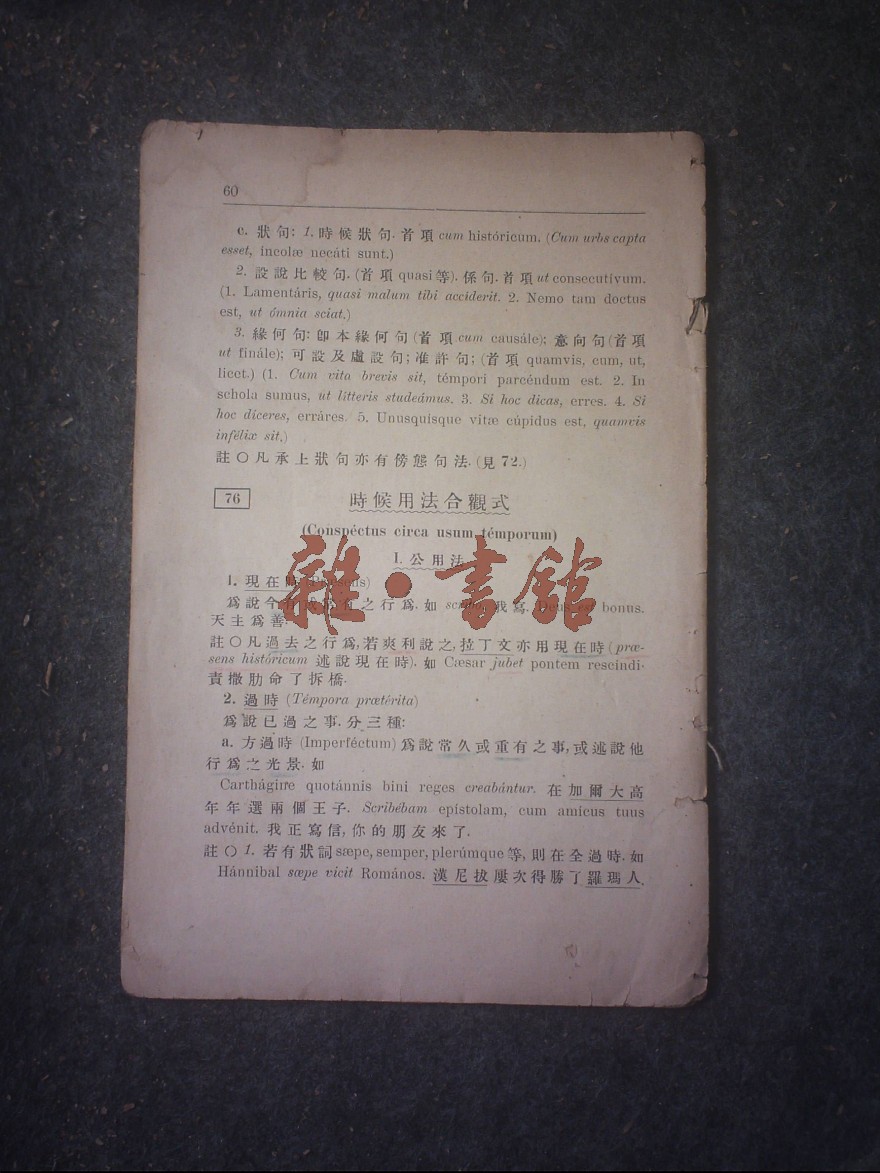 60
c. 狀句: 1. 時候狀句. 首項 cum históricum. (Cum urbs capta
esset, íncolæ necáti sunt.)
2. 設說比較句. (首項 quasi 等). 係句. 首項 ut consecutívum.
(1. Lamentáris, quasi malum tibi accíderit. 2. Nemo tam doctus
est, ut ómnia sciat.)
3. 緣何句: 卽本緣何句 (首項 cum causále); 意向句 (首項
ut finále); 可設及虛設句; 准許句; (首項 quamvis, cum, ut,
licet.) (1. Cum vita brevis sit, témpori parcéndum est. 2. In
schola sumus, ut lítteris studeámus. 3. Si hoc dicas, erres. 4. Si
hoc díceres, erráres. 5. Unusquísque vitæ cúpidus est, quamvis
infélix sit.)
註〇凡承上狀句亦有傍態句法. (見 72.)
76 時候用法合觀式
(Conspéctus circa usum témporum)
I. 公用法
1. 現在時
爲說今 有之行爲. 如 scribo, 我寫. Deus est bonus.
天主爲善.
註〇凡過去之行爲, 若爽利說之, 拉丁文亦用現在時 (præ-
sens históricum 述說現在時). 如 Cæsar jubet pontem rescíndi.
責撒肋命了拆橋.
2. 過時 (Témpora prætérita)
爲說已過之事. 分三種:
a. 方過時 (Imperféctum) 爲說常久或重有之事, 或述說他
行爲之光景. 如
Carthágine quotánnis bini reges creabántur. 在加爾大高
年年選兩個王子. Scribébam epístolam, cum amícus tuus
advénit. 我正寫信, 你的朋友來了.
註〇 1. 若有狀詞 sæpe, semper, plerúmque 等, 則在全過時. 如
Hánnibal sæpe vicit Romános. 漢尼拔屢次得勝了羅瑪人.
雜·書館